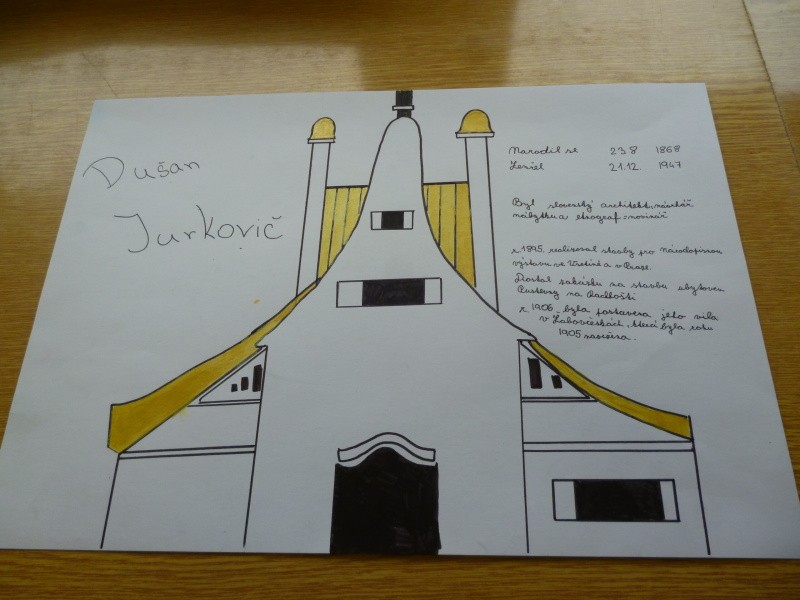 Dušan
Jurkovič
Narodil se 23.8 1868
Zemřel 21.12. 1947
Byl slovenský architekt, návrhář
nábytku a etnograf
r 1895. realizoval stavby pro Národopisnou
výstavu ve Vsetíně a v Praze.
Dostal zakázku na stavbu ubytoven
Pustevny na Radhošti
r 1906 byla postavena jeho vila
v Žabovřeskách, která byla roku
1905 navržena.